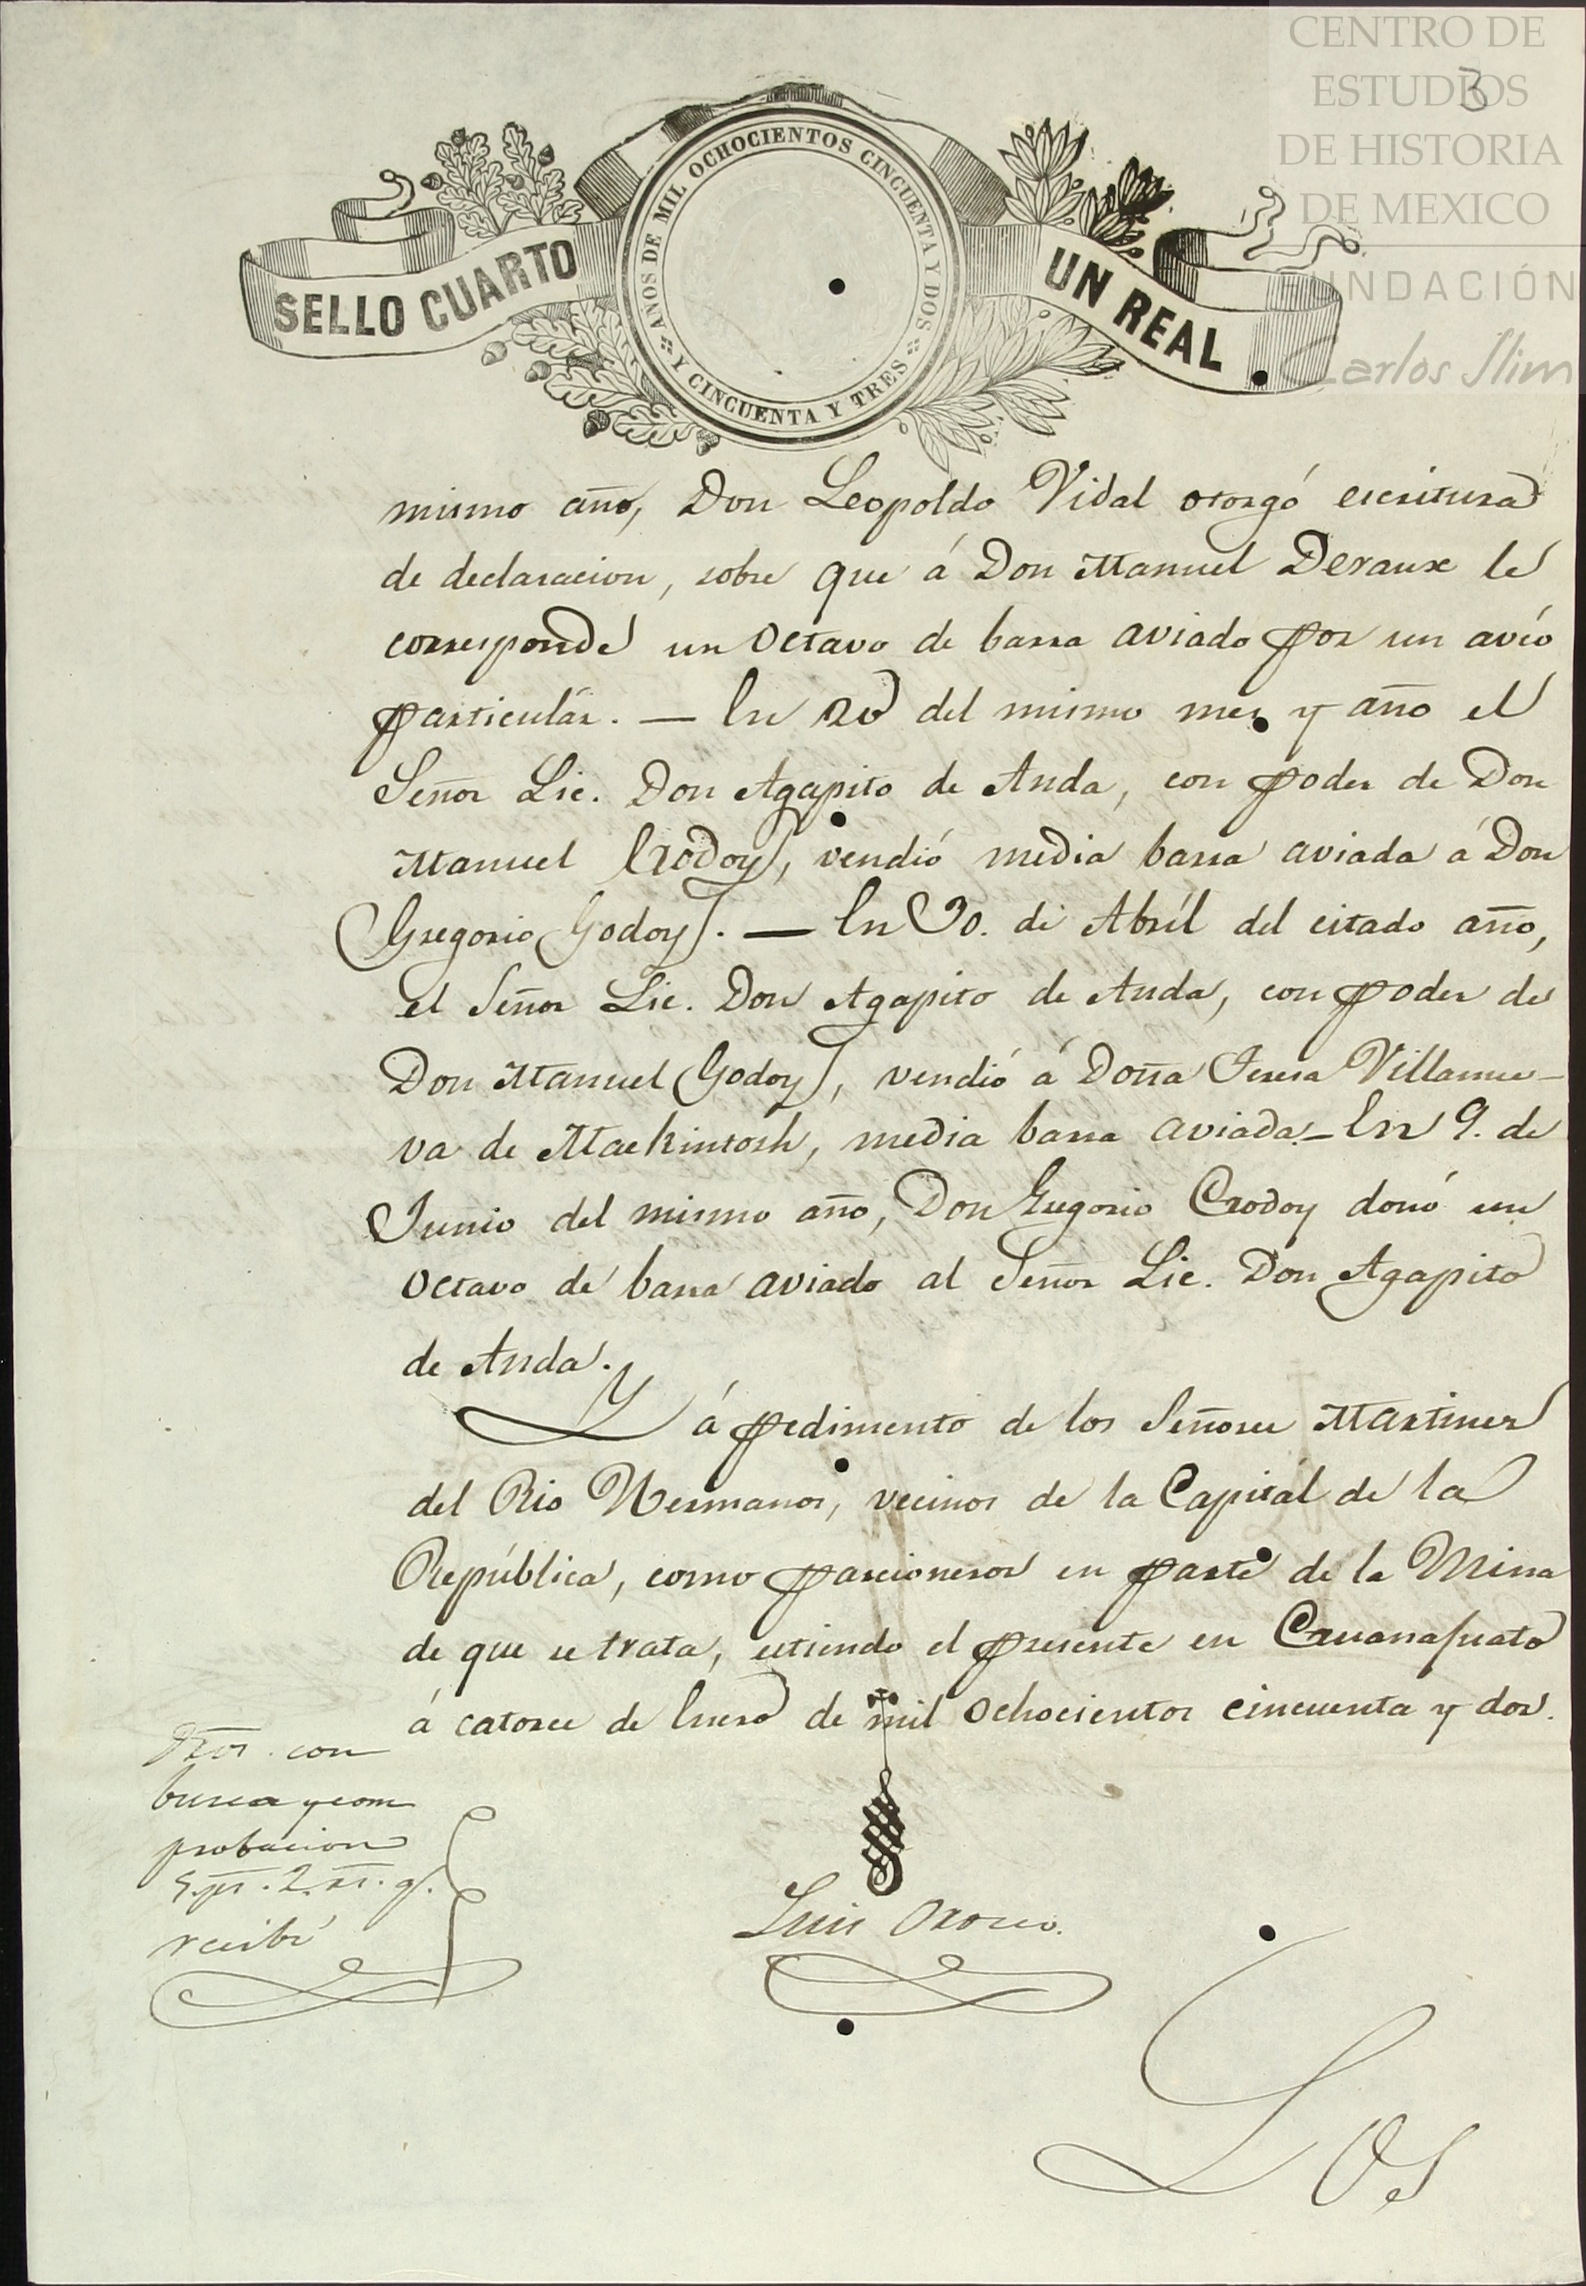 CENTRO DE
ESTUDIOS
DE HISTORIA
DE MEXICO
FUNDACIÓN
Carlos Slim
3
SELLO CUARTO
AÑOS DE MIL OCHOCIENTOS CINCUENTA Y DOS
Y CINCUENTA Y TRES
UN REAL
mismo año, Don Leopoldo Vidal otorgó escritura
de declaracion, sobre que á Don Manuel Deraux le
corresponde un Octavo de barra aviado por un avío
particulár. — En 20 del mismo mes y año el
Señor Lic. Don Agapito de Anda, con poder de Don
Manuel Godoy, vendió media barra aviada á Don
Gregorio Godoy. — En 30. de Abríl del citado año,
el Señor Lic. Don Agapito de Anda, con poder de
Don Manuel Godoy, vendió á Doña Teresa Villanue-
va de Mackintosh, media barra aviada. — En 9. de
Junio del mismo año, Don Gregorio Godoy donó un
Octavo de barra aviado al Señor Lic. Don Agapito
de Anda.
Y á pedimento de los Señores Martinez
del Rio Hermanos, vecinos de la Capitál de la
República, como parcioneros en parte de la Mina
de que se trata, estiendo el presente en Guanajuato
á catorce de Enero de mil Ochocientos cincuenta y dos.
Dros. con
busca y com
probacion
recibí
Luis Orosco.
Los